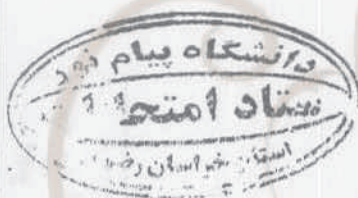 دانشگاه پیام نور
ستاد امتحا
استان خراسان رضوی